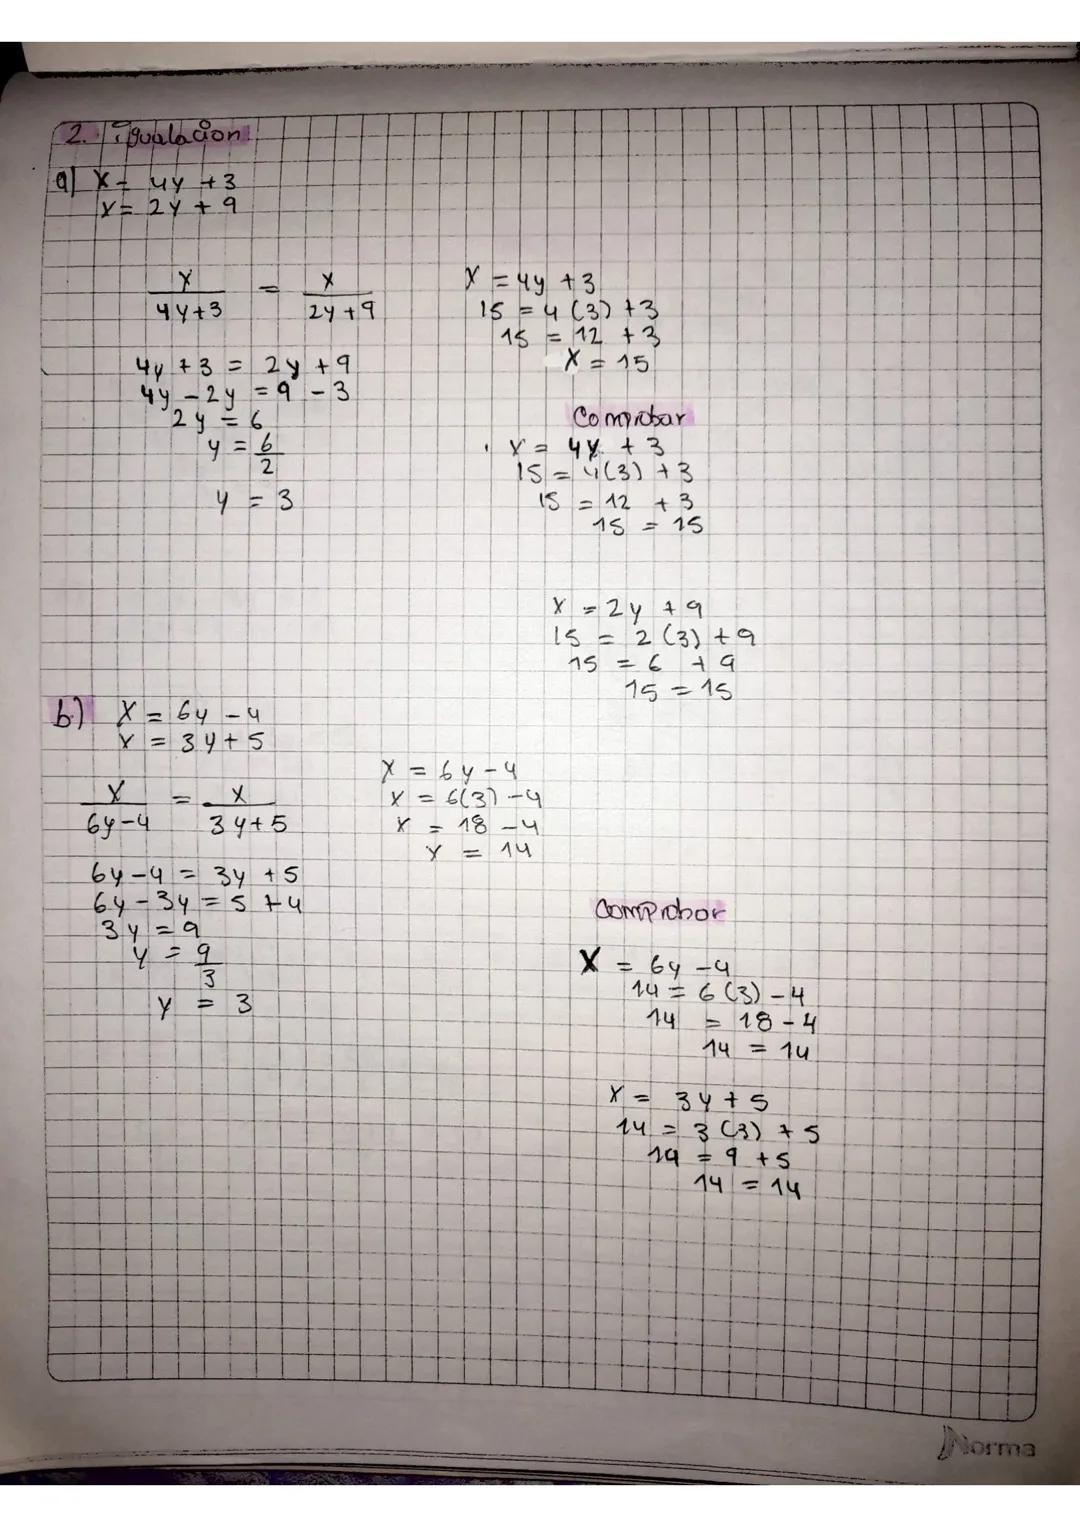 2. igualacion
a) x = 4y + 3
x = 2y + 9
x / 4y+3 = x / 2y+9
4y + 3 = 2y + 9
4y - 2y = 9 - 3
2y = 6
y = 6/2
y = 3
x = 4y + 3
15 = 4(3) + 3
15 = 12 + 3
x = 15
Comprobar
x = 4y + 3
15 = 4(3) + 3
15 = 12 + 3
15 = 15
x = 2y + 9
15 = 2(3) + 9
15 = 6 + 9
15 = 15
b) x = 6y - 4
x = 3y + 5
x / 6y-4 = x / 3y+5
6y - 4 = 3y + 5
6y - 3y = 5 + 4
3y = 9
y = 9/3
y = 3
x = 6y - 4
x = 6(3) - 4
x = 18 - 4
x = 14
Comprobar
x = 6y - 4
14 = 6(3) - 4
14 = 18 - 4
14 = 14
x = 3y + 5
14 = 3(3) + 5
14 = 9 + 5
14 = 14
Norma